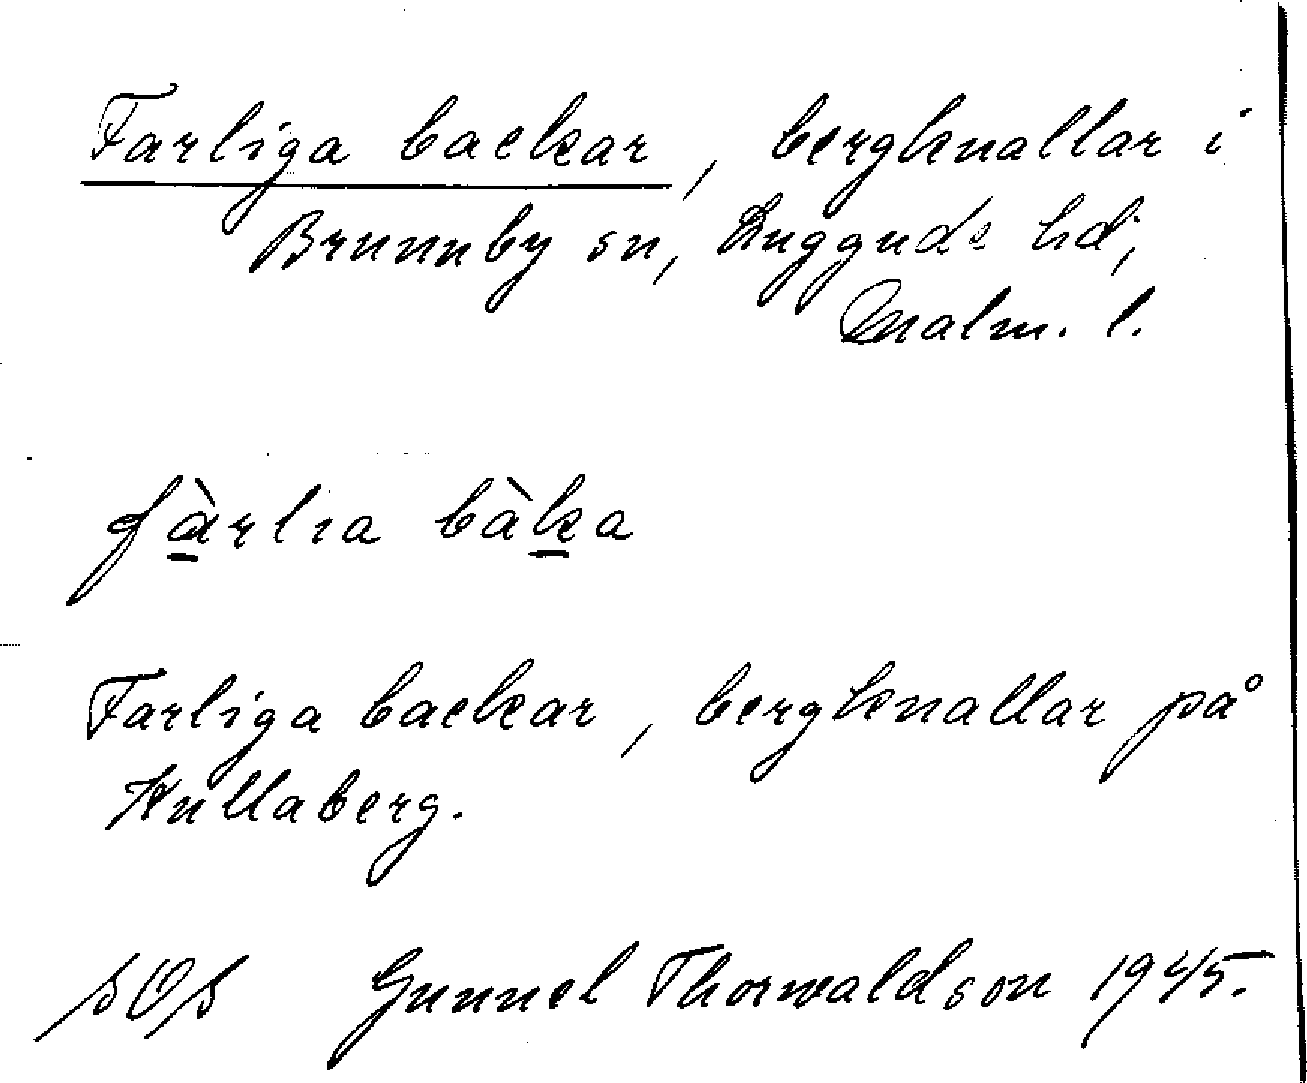 Farliga backar, bergknallar i
Brunnby sn, Lugguds hd,
Malm. l.
fàrlıa bàka
Farliga backar, bergknallar på
Kullaberg.
SOS Gunnel Thorwaldson 1945.